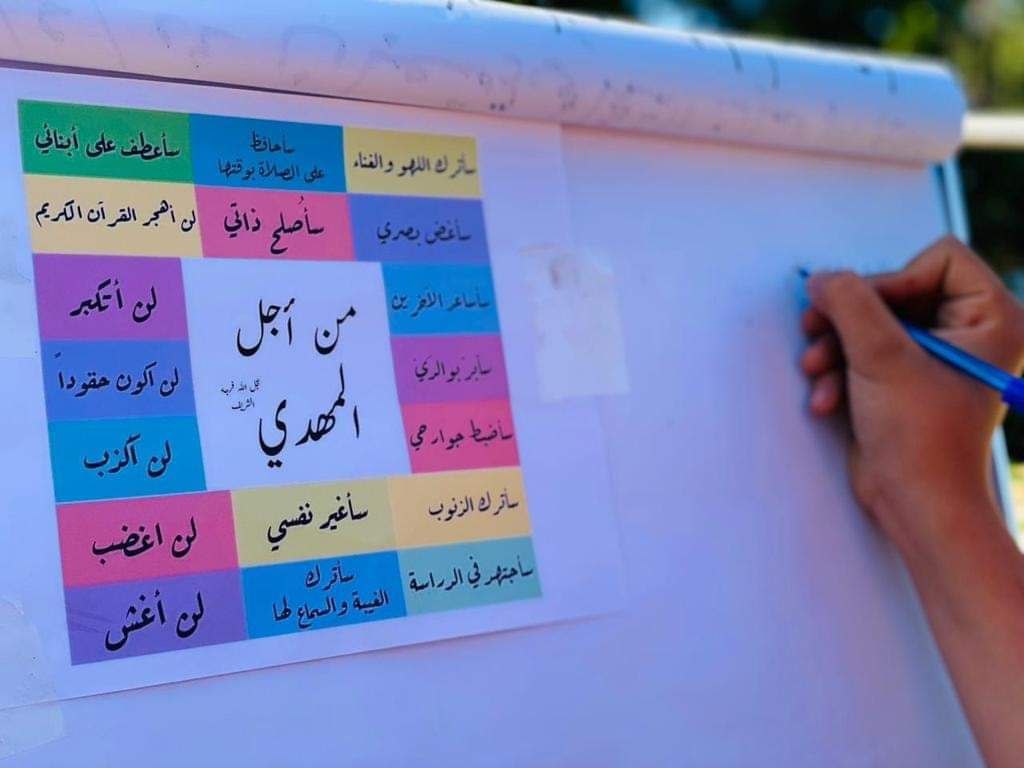 سأترك اللهو والغناء
سأحافظ
على الصلاة بوقتها
سأعطف على أبنائي
سأغض بصري
سأُصلح ذاتي
لن أهجر القرآن الكريم
من أجل
المهدي
عجل الله فرجه
الشريف
سأساعد الآخرين
سأبر بوالدي
سأضبط جوارحي
لن أتكبر
لن أكون حقوداً
لن أكذب
سأترك الذنوب
سأغير نفسي
لن اغضب
سأجتهد في الدراسة
سأترك
الغيبة والسماع لها
لن أغش